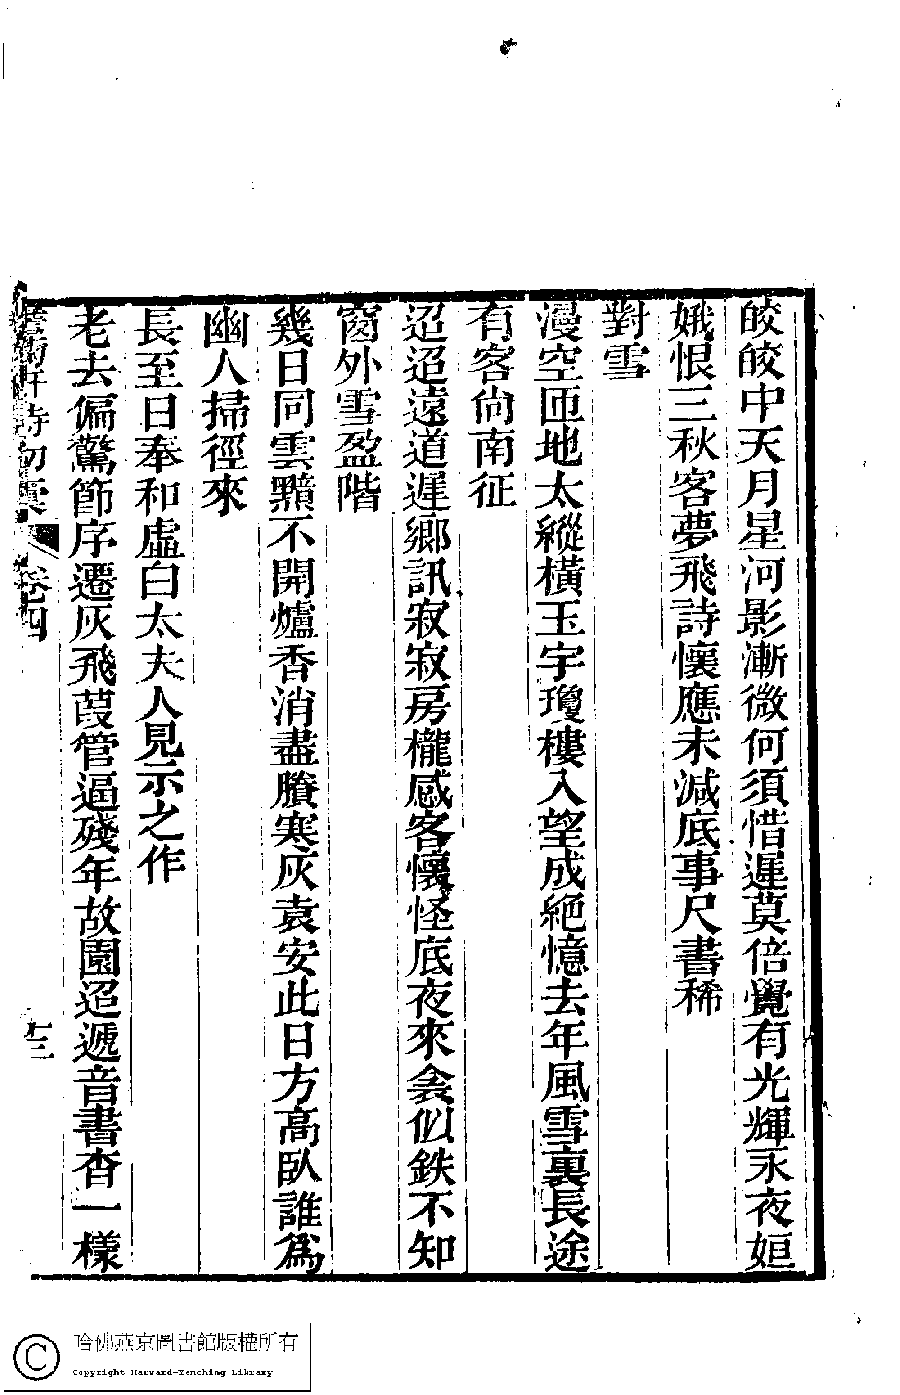 皎皎中天月星河影漸微何須惜遲莫倍覺有光輝永夜姮
娥恨三秋客夢飛詩懷應未減底事尺書稀
對雪
漫空匝地太縱橫玉宇瓊樓入望成絕憶去年風雪裏長途
有客尙南征
迢迢遠道遲鄉訊寂寂房櫳感客懷怪底夜來衾似鉄不知
窗外雪盈階
幾日同雲黯不開爐香消盡賸寒灰袁安此日方高臥誰爲
幽人掃徑來
長至日奉和虛白太夫人見示之作
老去偏驚節序遷灰飛葭管逼殘年故園迢遞音書杳一樣
軒詩初稾 卷四
十三
哈佛燕京圖書館版權所有
Copyright Harvard-Yenching Library